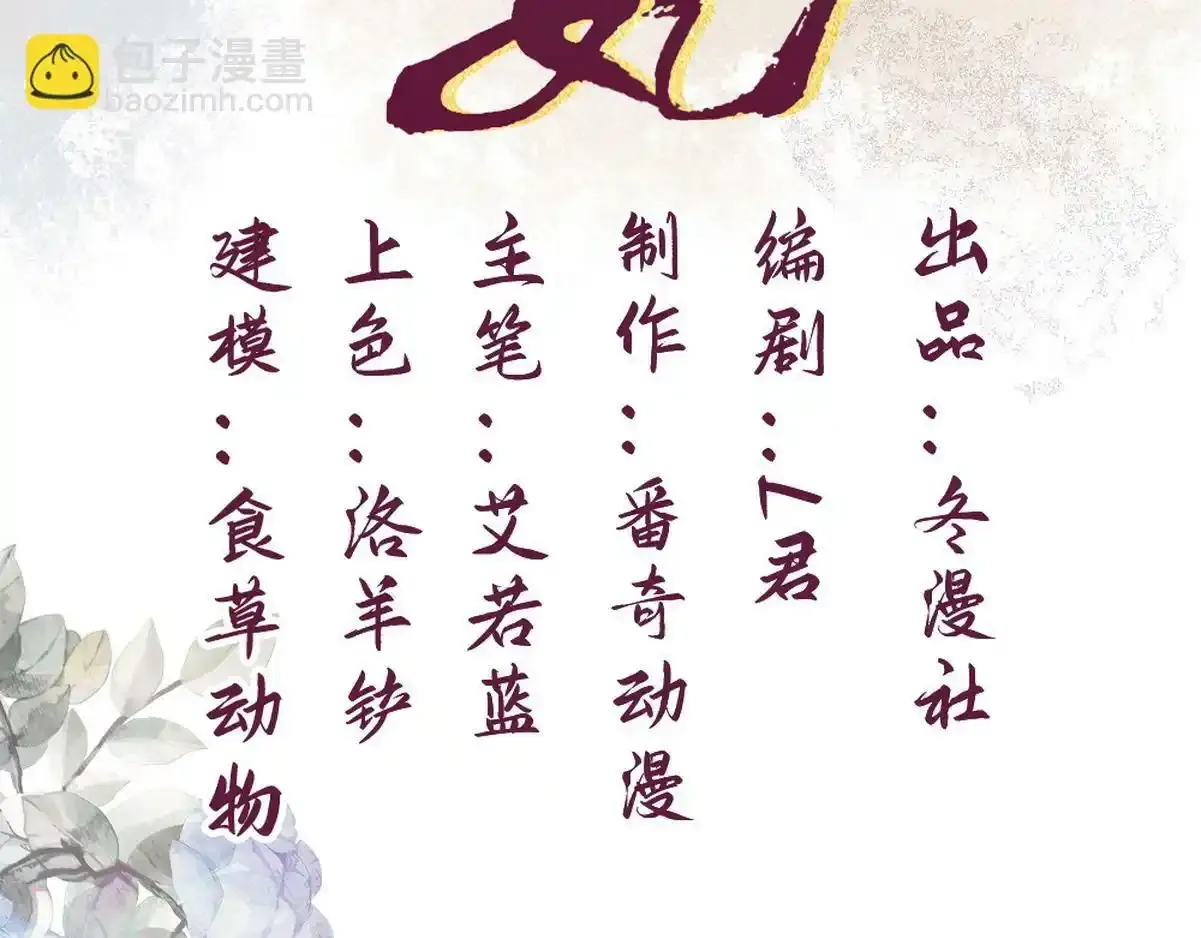 包子漫畫
baozimh.com
出品：冬漫社
编剧：T君
制作：番奇动漫
主笔：艾若蓝
上色：洛羊铲
建模：食草动物